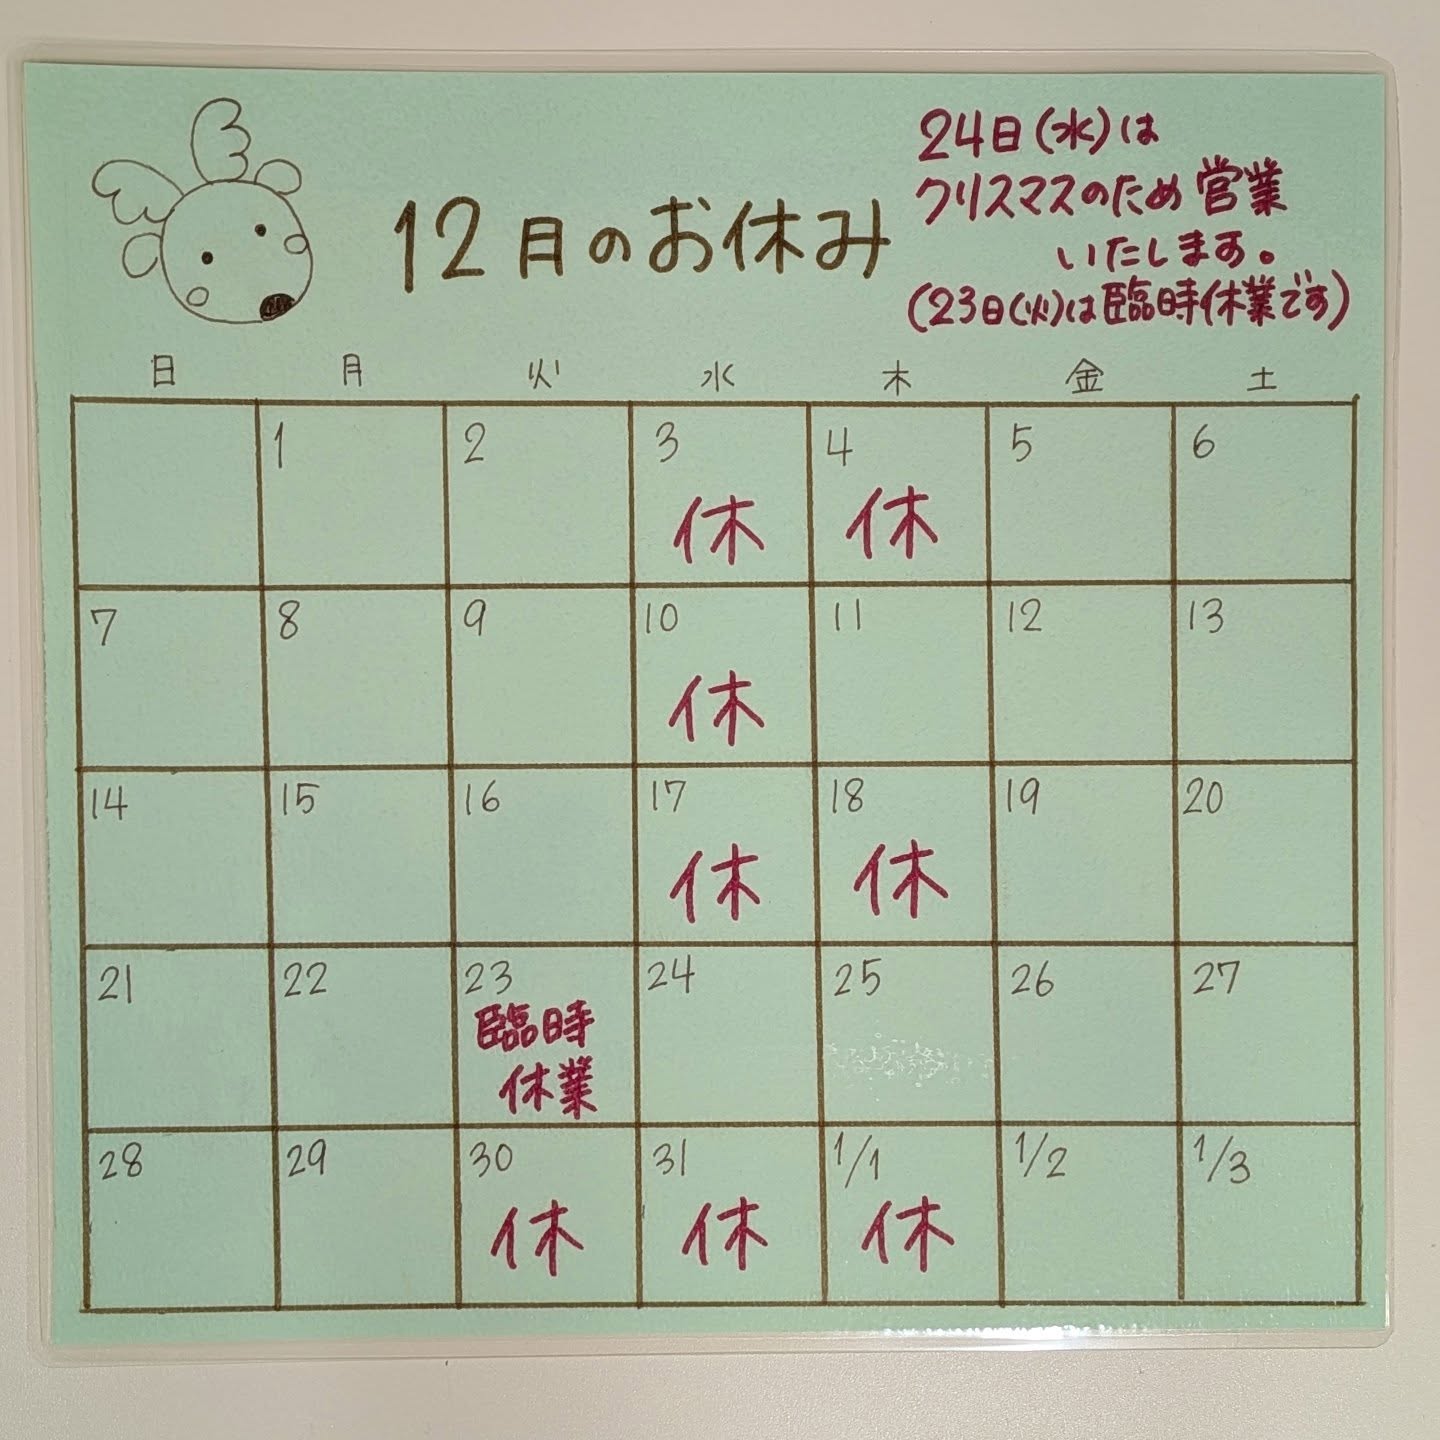 12月のお休み
24日(水)は
クリスマスのため営業
いたします。
(23日(火)は臨時休業です)
日 月 火 水 木 金 土
1 2 3 4 5 6
休 休
7 8 9 10 11 12 13
休
14 15 16 17 18 19 20
休 休
21 22 23 24 25 26 27
臨時
休業
28 29 30 31 1/1 1/2 1/3
休 休 休